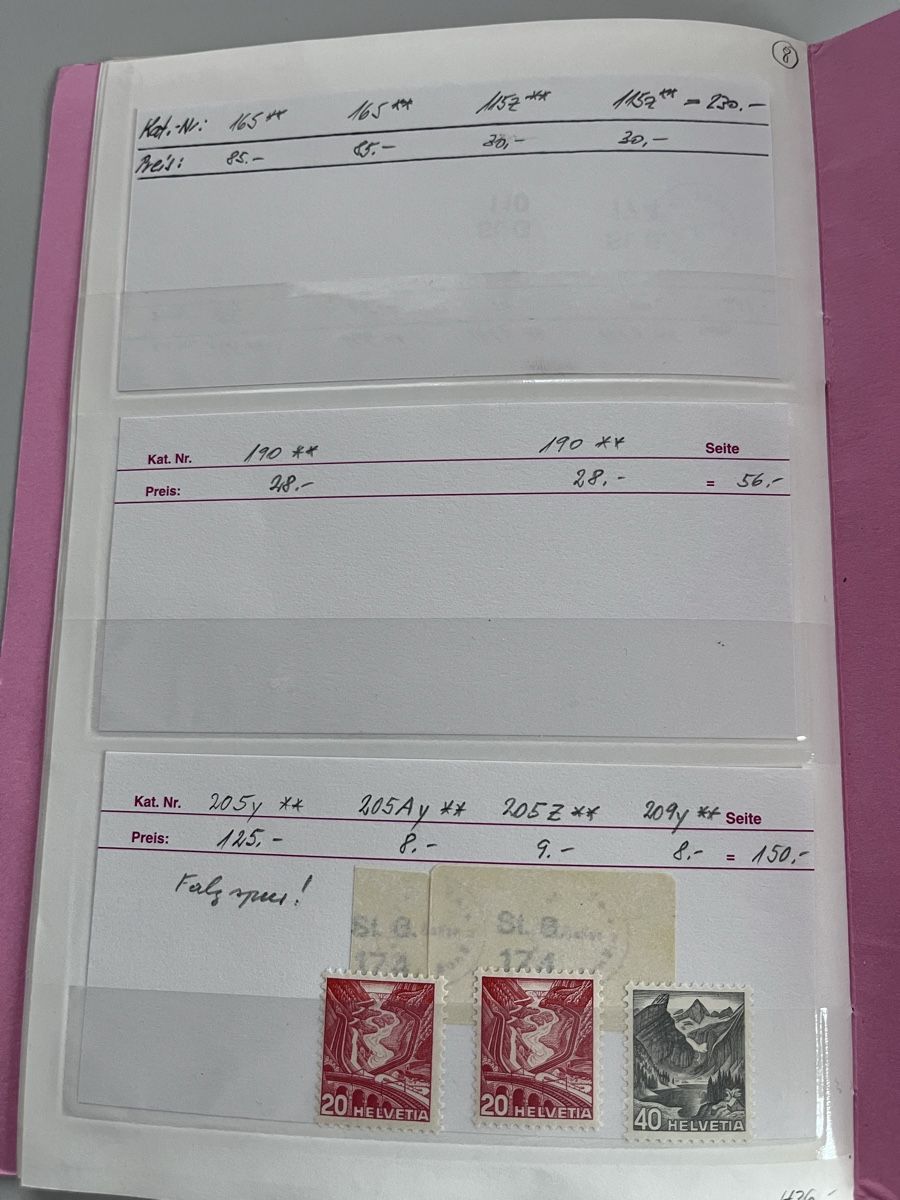 8
Kat.-Nr: 165** 165** 115z** 115z** = 230.-
Preis: 85.- 85.- 30,- 30,-
Kat. Nr. 190 ** 190 ** Seite
Preis: 28.- 28.- = 56,-
Kat. Nr. 205y ** 205Ay ** 205Z ** 209y ** Seite
Preis: 125.- 8.- 9.- 8.- = 150,-
Falzspur!
St. G. St. G.
174
20 HELVETIA 20 HELVETIA 40 HELVETIA